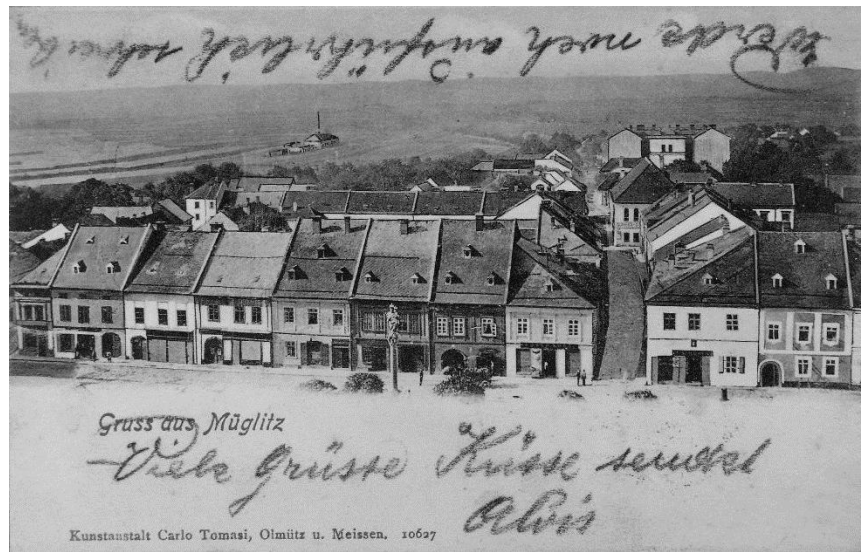 Werde noch ausführlich schreib
Gruss aus Müglitz
Viele Grüsse Küsse sendet
Alois
Kunstanstalt Carlo Tomasi, Olmütz u. Meissen. 10627